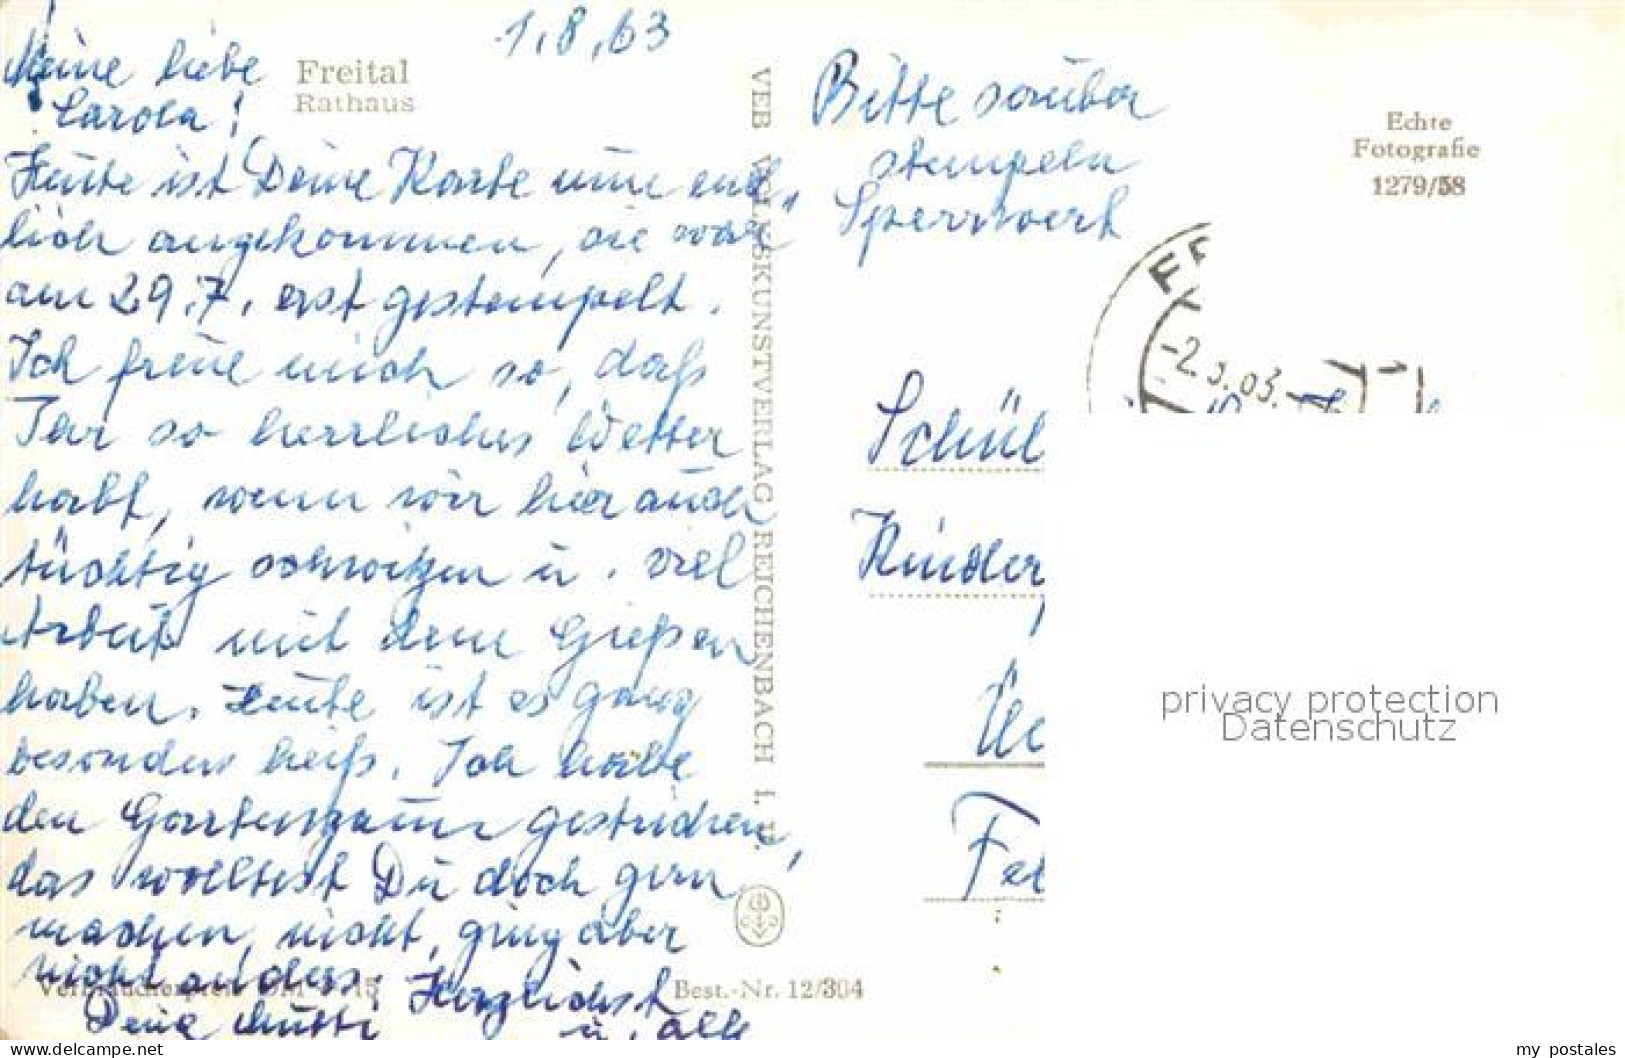 1.8.63
Meine liebe
Carola!
Freital
Rathaus
Heute ist Deine Karte nun end-
lich angekommen, sie war
am 29.7. erst gestempelt.
Ich freue mich so, daß
Ihr so herrliches Wetter
habt, wenn wir hier auch
tüchtig schwitzen u. viel
Arbeit mit dem Gießen
haben. Heute ist es ganz
besonders heiß. Ich habe
den Gartenzaun gestrichen,
das wolltest Du doch gern
machen, nicht, ging aber
nicht anders. Herzlichst
Deine Mutti u. alle
Best.-Nr. 12/304
VEB VOLKSKUNSTVERLAG REICHENBACH i. V.
Bitte sauber
stempeln
Sperrwert
Echte
Fotografie
1279/58
Schül
Kinder
Fer
privacy protection
Datenschutz
www.delcampe.net
my_postales